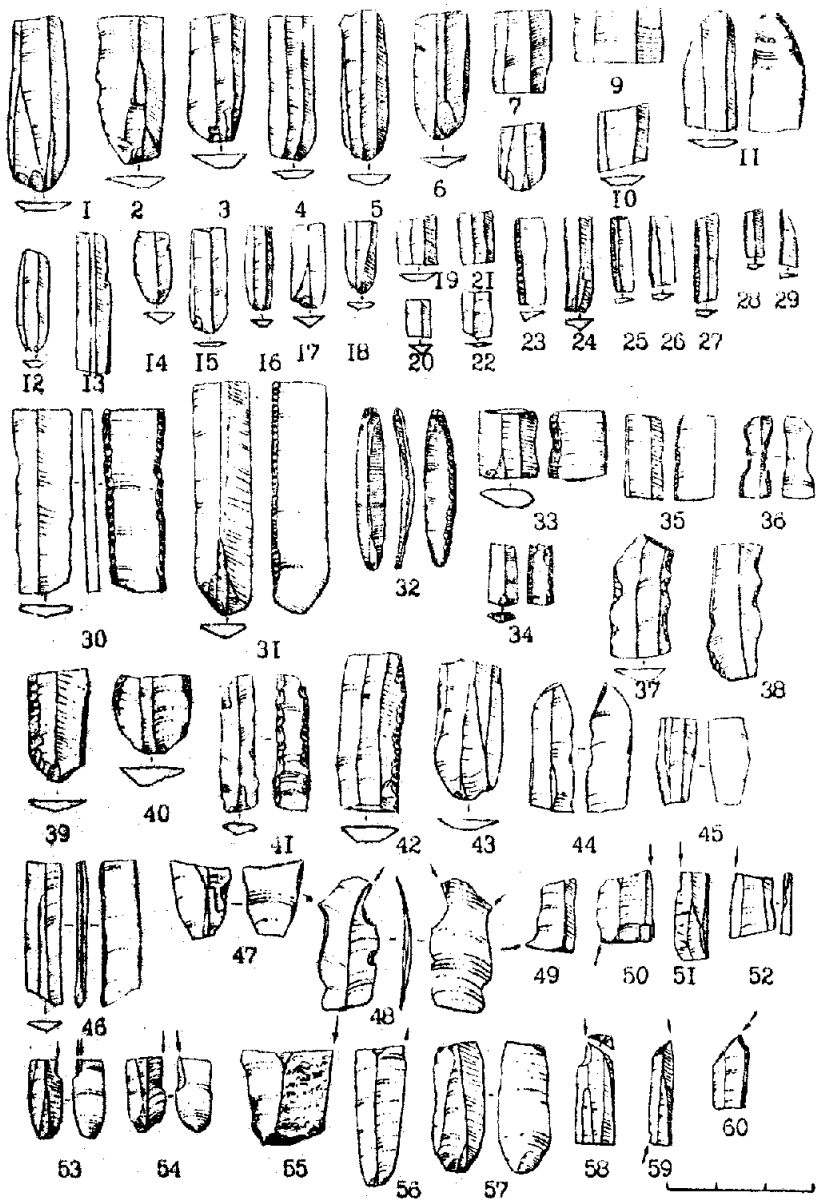 1 2 3 4 5 6 7 9 10 11
12 13 14 15 16 17 18 19 20 21 22 23 24 25 26 27 28 29
30 31 32 33 34 35 36 37 38
39 40 41 42 43 44 45
46 47 48 49 50 51 52
53 54 55 56 57 58 59 60